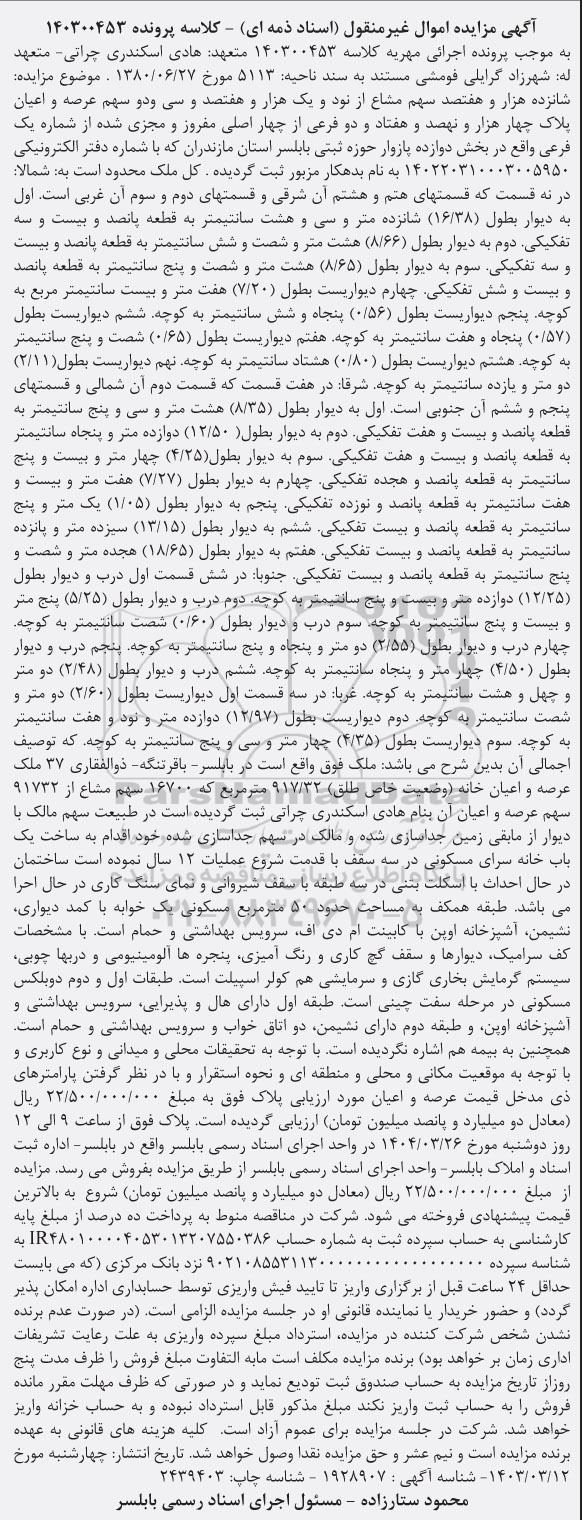 آگهی مزایده اموال غیرمنقول (اسناد ذمه ای) - کلاسه پرونده ۱۴۰۳۰۰۴۵۳
به موجب پرونده اجرائی مهریه کلاسه ۱۴۰۳۰۰۴۵۳ متعهد: هادی اسکندری چراتی- متعهد
له: شهرزاد گرایلی فومشی مستند به سند ناحیه: ۵۱۱۳ مورخ ۱۳۸۰/۰۶/۲۷ . موضوع مزایده:
شانزده هزار و هفتصد سهم مشاع از نود و یک هزار و هفتصد و سی ودو سهم عرصه و اعیان
پلاک چهار هزار و نهصد و هفتاد و دو فرعی از چهار اصلی مفروز و مجزی شده از شماره یک
فرعی واقع در بخش دوازده پازوار حوزه ثبتی بابلسر استان مازندران که با شماره دفتر الکترونیکی
۱۴۰۲۲۰۳۱۰۰۰۳۰۰۵۹۵۰ به نام بدهکار مزبور ثبت گردیده . کل ملک محدود است به: شمالا:
در نه قسمت که قسمتهای هتم و هشتم آن شرقی و قسمتهای دوم و سوم آن غربی است. اول
به دیوار بطول (۱۶/۳۸) شانزده متر و سی و هشت سانتیمتر به قطعه پانصد و بیست و سه
تفکیکی. دوم به دیوار بطول (۸/۶۶) هشت متر و شصت و شش سانتیمتر به قطعه پانصد و بیست
و سه تفکیکی. سوم به دیوار بطول (۸/۶۵) هشت متر و شصت و پنج سانتیمتر به قطعه پانصد
و بیست و شش تفکیکی. چهارم دیواریست بطول (۷/۲۰) هفت متر و بیست سانتیمتر مربع به
کوچه. پنجم دیواریست بطول (۰/۵۶) پنجاه و شش سانتیمتر به کوچه. ششم دیواریست بطول
(۰/۵۷) پنجاه و هفت سانتیمتر به کوچه. هفتم دیواریست بطول (۰/۶۵) شصت و پنج سانتیمتر
به کوچه. هشتم دیواریست بطول (۰/۸۰) هشتاد سانتیمتر به کوچه. نهم دیواریست بطول(۲/۱۱)
دو متر و یازده سانتیمتر به کوچه. شرقا: در هفت قسمت که قسمت دوم آن شمالی و قسمتهای
پنجم و ششم آن جنوبی است. اول به دیوار بطول (۸/۳۵) هشت متر و سی و پنج سانتیمتر به
قطعه پانصد و بیست و هفت تفکیکی. دوم به دیوار بطول( ۱۲/۵۰) دوازده متر و پنجاه سانتیمتر
به قطعه پانصد و بیست و هفت تفکیکی. سوم به دیوار بطول(۴/۲۵) چهار متر و بیست و پنج
سانتیمتر به قطعه پانصد و هجده تفکیکی. چهارم به دیوار بطول (۷/۲۷) هفت متر و بیست و
هفت سانتیمتر به قطعه پانصد و نوزده تفکیکی. پنجم به دیوار بطول (۱/۰۵) یک متر و پنج
سانتیمتر به قطعه پانصد و بیست تفکیکی. ششم به دیوار بطول (۱۳/۱۵) سیزده متر و پانزده
سانتیمتر به قطعه پانصد و بیست تفکیکی. هفتم به دیوار بطول (۱۸/۶۵) هجده متر و شصت و
پنج سانتیمتر به قطعه پانصد و بیست تفکیکی. جنوبا: در شش قسمت اول درب و دیوار بطول
(۱۲/۲۵) دوازده متر و بیست و پنج سانتیمتر به کوچه. دوم درب و دیوار بطول (۵/۲۵) پنج متر
و بیست و پنج سانتیمتر به کوچه. سوم درب و دیوار بطول (۰/۶۰) شصت سانتیمتر به کوچه.
چهارم درب و دیوار بطول (۲/۵۵) دو متر و پنجاه و پنج سانتیمتر به کوچه. پنجم درب و دیوار
بطول (۴/۵۰) چهار متر و پنجاه سانتیمتر به کوچه. ششم درب و دیوار بطول (۲/۴۸) دو متر
و چهل و هشت سانتیمتر به کوچه. غربا: در سه قسمت اول دیواریست بطول (۲/۶۰) دو متر و
شصت سانتیمتر به کوچه. دوم دیواریست بطول (۱۲/۹۷) دوازده متر و نود و هفت سانتیمتر
به کوچه. سوم دیواریست بطول (۴/۳۵) چهار متر و سی و پنج سانتیمتر به کوچه. که توصیف
اجمالی آن بدین شرح می باشد: ملک فوق واقع است در بابلسر- باقرتنگه- ذوالفقاری ۳۷ ملک
عرصه و اعیان خانه (وضعیت خاص طلق) ۹۱۷/۳۲ مترمربع که ۱۶۷۰۰ سهم مشاع از ۹۱۷۳۲
سهم عرصه و اعیان آن بنام هادی اسکندری چراتی ثبت گردیده است در طبیعت سهم مالک با
دیوار از مابقی زمین جداسازی شده و مالک در سهم جداسازی شده خود اقدام به ساخت یک
باب خانه سرای مسکونی در سه سقف با قدمت شروع عملیات ۱۲ سال نموده است ساختمان
در حال احداث با اسکلت بتنی در سه طبقه با سقف شیروانی و نمای سنگ کاری در حال اجرا
می باشد. طبقه همکف به مساحت حدود ۵۰ مترمربع مسکونی یک خوابه با کمد دیواری،
نشیمن، آشپزخانه اوپن با کابینت ام دی اف، سرویس بهداشتی و حمام است. با مشخصات
کف سرامیک، دیوارها و سقف گچ کاری و رنگ آمیزی، پنجره ها آلومینیومی و دربها چوبی،
سیستم گرمایش بخاری گازی و سرمایشی هم کولر اسپیلت است. طبقات اول و دوم دوبلکس
مسکونی در مرحله سفت چینی است. طبقه اول دارای هال و پذیرایی، سرویس بهداشتی و
آشپزخانه اوپن، و طبقه دوم دارای نشیمن، دو اتاق خواب و سرویس بهداشتی و حمام است.
همچنین به بیمه هم اشاره نگردیده است. با توجه به تحقیقات محلی و میدانی و نوع کاربری و
با توجه به موقعیت مکانی و محلی و منطقه ای و نحوه استقرار و با در نظر گرفتن پارامترهای
ذی مدخل قیمت عرصه و اعیان مورد ارزیابی پلاک فوق به مبلغ ۲۲/۵۰۰/۰۰۰/۰۰۰ ریال
(معادل دو میلیارد و پانصد میلیون تومان) ارزیابی گردیده است. پلاک فوق از ساعت ۹ الی ۱۲
روز دوشنبه مورخ ۱۴۰۴/۰۳/۲۶ در واحد اجرای اسناد رسمی بابلسر واقع در بابلسر- اداره ثبت
اسناد و املاک بابلسر- واحد اجرای اسناد رسمی بابلسر از طریق مزایده بفروش می رسد. مزایده
از مبلغ ۲۲/۵۰۰/۰۰۰/۰۰۰ ریال (معادل دو میلیارد و پانصد میلیون تومان) شروع به بالاترین
قیمت پیشنهادی فروخته می شود. شرکت در مناقصه منوط به پرداخت ده درصد از مبلغ پایه
کارشناسی به حساب سپرده ثبت به شماره حساب IR۴۸۰۱۰۰۰۰۴۰۵۳۰۱۳۲۰۷۵۵۰۳۸۶ به
شناسه سپرده ۹۰۲۱۰۸۵۵۳۱۱۳۰۰۰۰۰۰۰۰۰۰۰۰۰۰۰۰۰۰ نزد بانک مرکزی (که می بایست
حداقل ۲۴ ساعت قبل از برگزاری واریز تا تایید فیش واریزی توسط حسابداری اداره امکان پذیر
گردد) و حضور خریدار یا نماینده قانونی او در جلسه مزایده الزامی است. (در صورت عدم برنده
نشدن شخص شرکت کننده در مزایده، استرداد مبلغ سپرده واریزی به علت رعایت تشریفات
اداری زمان بر خواهد بود) برنده مزایده مکلف است مابه التفاوت مبلغ فروش را ظرف مدت پنج
روزاز تاریخ مزایده به حساب صندوق ثبت تودیع نماید و در صورتی که ظرف مهلت مقرر مانده
فروش را به حساب ثبت واریز نکند مبلغ مذکور قابل استرداد نبوده و به حساب خزانه واریز
خواهد شد. شرکت در جلسه مزایده برای عموم آزاد است. کلیه هزینه های قانونی به عهده
برنده مزایده است و نیم عشر و حق مزایده نقدا وصول خواهد شد. تاریخ انتشار: چهارشنبه مورخ
۱۴۰۳/۰۳/۱۲- شناسه آگهی : ۱۹۲۸۹۰۷ - شناسه چاپ: ۲۴۳۹۴۰۳
محمود ستارزاده - مسئول اجرای اسناد رسمی بابلسر